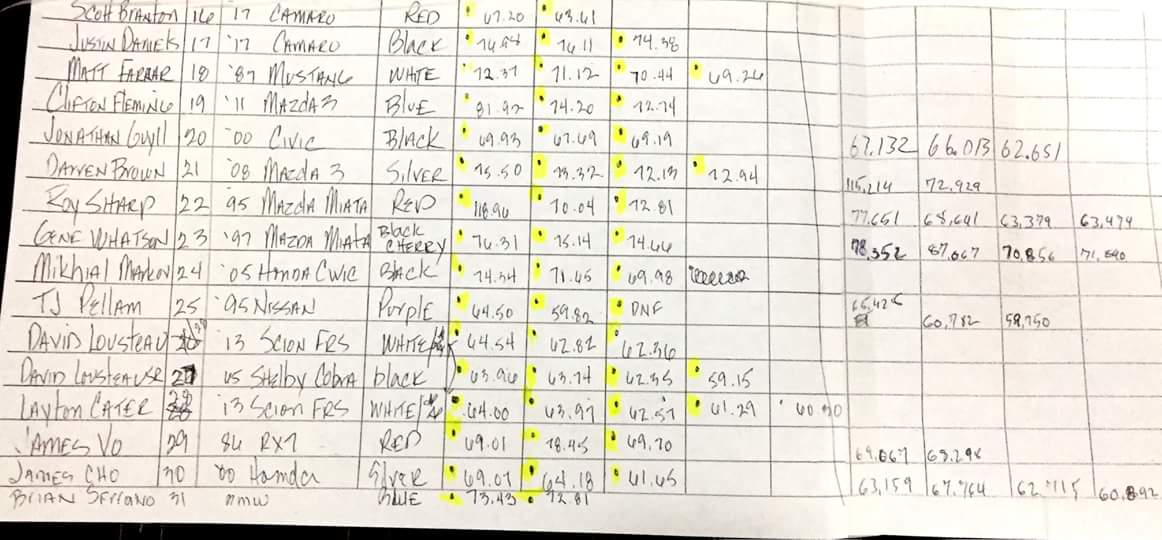 Scott Branton 16 '17 CAMARO RED 67.20 63.61
Justin Daniels 17 '17 CAMARO Black 74.98 74.11 74.38
MATT FARRAR 18 '87 MUSTANG WHITE 72.37 71.12 70.44 69.26
Clifton Fleming 19 '11 MAZDA 3 Blue 81.92 74.20 72.74
JONATHAN Guyll 20 '00 CIVIC Black 69.93 67.69 69.19 67.132 66.013 62.651
DARREN BROWN 21 '08 MAZDA 3 Silver 75.50 73.32 72.13 72.94 115,214 72.929
Roy SHARP 22 '95 MAZDA MIATA RED 118.96 70.04 72.81 77.651 68,641 63,379 63,474
GENE WHATSON 23 '97 MAZDA MIATA Black CHERRY 76.31 75.14 74.66 78,352 87,067 70,856 71,590
Mikhial Markov 24 '05 HONDA CIVIC Black 74.34 71.65 69.98
TJ Pellam 25 '95 NISSAN Purple 64.50 59.82 DNF 60,782 59,750
DAVID LOUSTEAU '13 SCION FRS WHITE 64.54 62.82 62.36
DAVID LOUSTEAU SR 27 US Shelby Cobra black 63.96 63.74 62.35 59.15
LAYTON CATER 28 '13 Scion FRS WHITE 64.00 63.97 62.57 61.29 60.30
JAMES VO 29 86 RX7 RED 69.01 78.45 69.70 69,067 68,298
JAMES CHO 30 '00 Honda Silver 69.07 64.18 61.65 63,159 67.764 62,715 60.892
BRIAN SERRANO 31 BMW BLUE 73.43 72.81